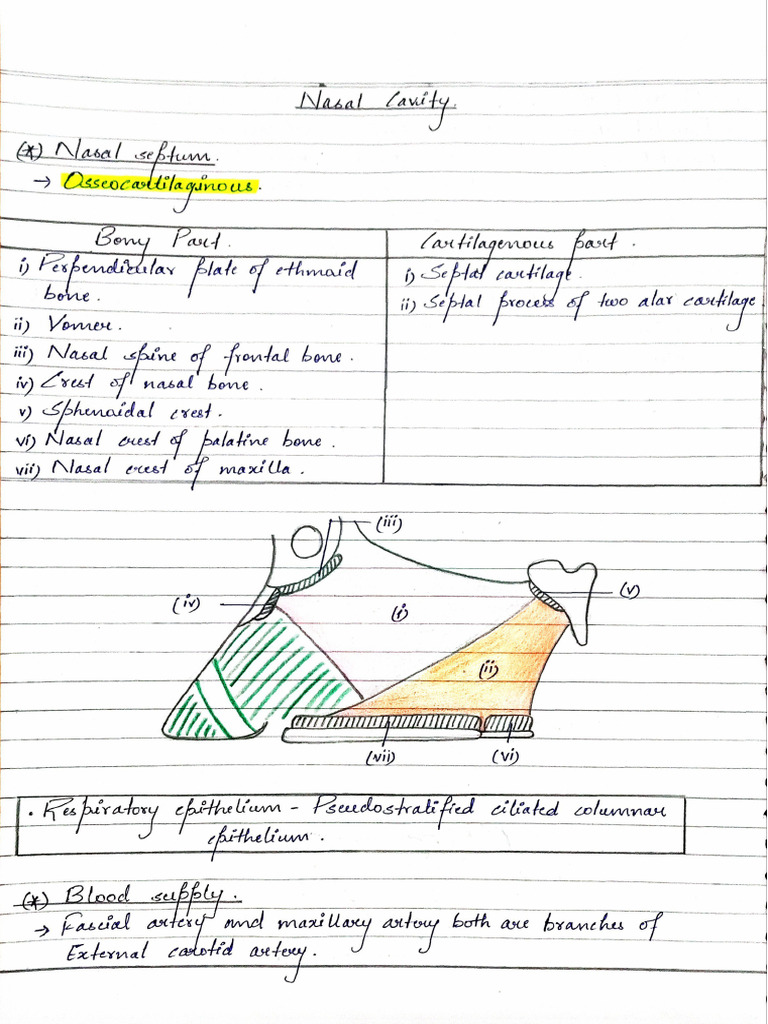 Nasal Cavity.
(*) Nasal septum.
→ Osseocartilaginous.
Bony Part.
i) Perpendicular plate of ethmoid
bone.
ii) Vomer.
iii) Nasal spine of frontal bone.
iv) Crest of nasal bone.
v) Sphenoidal crest.
vi) Nasal crest of palatine bone.
vii) Nasal crest of maxilla.
Cartilagenous part.
i) Septal cartilage.
ii) Septal process of two alar cartilage
(iii)
(iv)
(i)
(v)
(ii)
(vii)
(vi)
• Respiratory epithelium - Pseudostratified ciliated columnar
epithelium.
(*) Blood supply.
→ Fascial artery and maxillary artery both are branches of
External carotid artery.